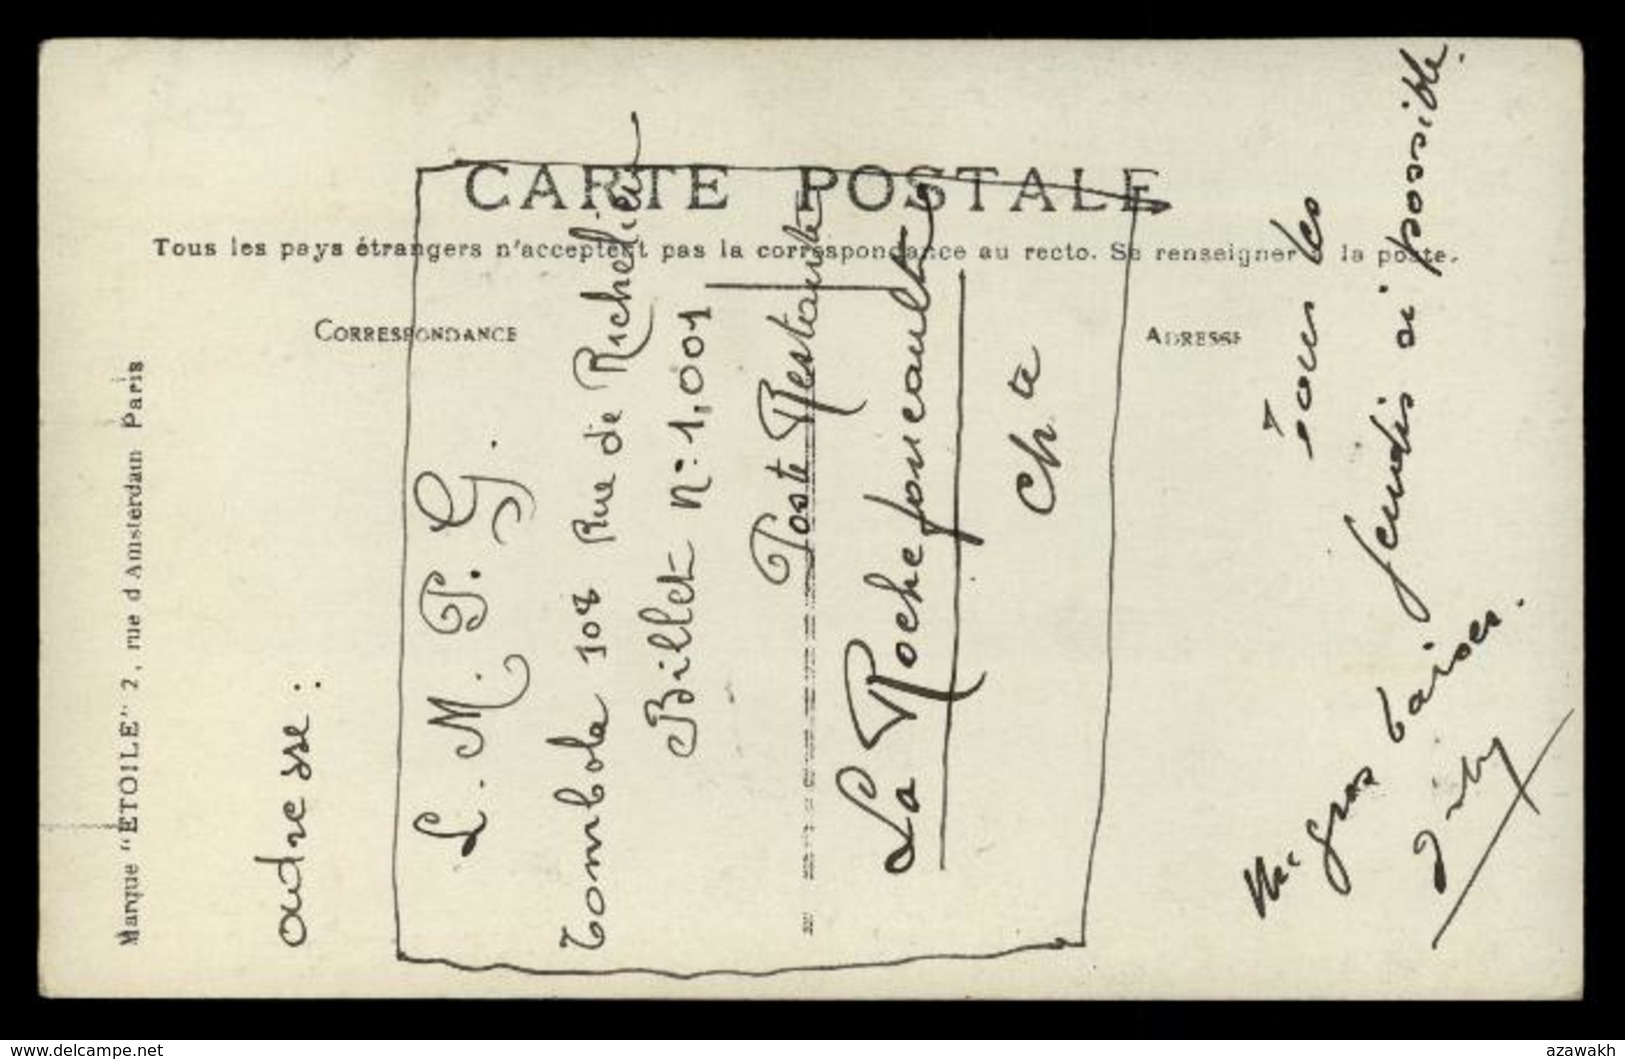 CARTE POSTALE
Tous les pays étrangers n'acceptent pas la correspondance au recto. Se renseigner à la poste.
CORRESPONDANCE
ADRESSE
Marque "ETOILE" 2, rue d'Amsterdam Paris
adresse :
L. M. P. G.
Tombola 108 Rue de Richelieu
Billet N: 1,001
Poste Restante
La Rochefoucault
Ch te
tous les
jeudis si possible.
gros baiser.
www.delcampe.net
azawakh